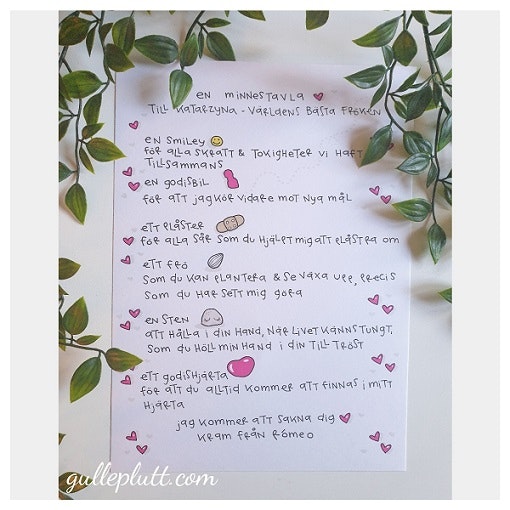 en minnestavla
Till Katarzyna - världens bästa fröken
en smiley
för alla skratt & tokigheter vi haft
tillsammans
en godisbil
för att jag kör vidare mot nya mål
ett plåster
för alla sår som du hjälpt mig att plåstra om
ett frö
som du kan plantera & se växa upp, precis
som du har sett mig göra
en sten
att hålla i din hand, när livet känns tungt,
som du höll min hand i din till tröst
ett godishjärta
för att du alltid kommer att finnas i mitt
hjärta
jag kommer att sakna dig
kram från Romeo
gulleplutt.com